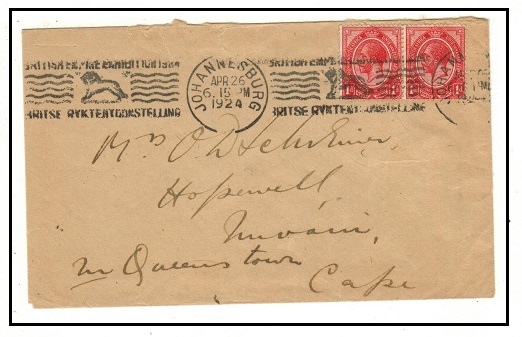 BRITISH EMPIRE EXHIBITION 1924
BRITSE RYKTENTOONSTELLING
JOHANNESBURG
APR 26
6. 15 PM
1924
BRITISH EMPIRE
BRITSE RYKTENTOONSTELLING
Mrs O D Schreiner
Hopewell,
Imvani,
nr Queenstown
Cape